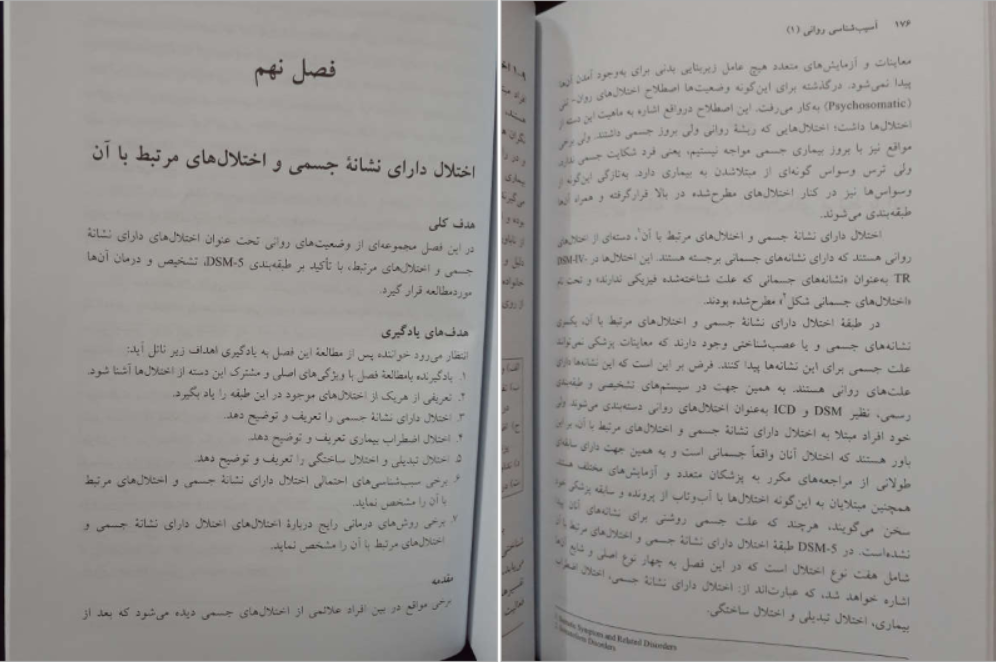 فصل نهم
اختلال دارای نشانهٔ جسمی و اختلال‌های مرتبط با آن
هدف کلی
در این فصل مجموعه‌ای از وضعیت‌های روانی تحت عنوان اختلال‌های دارای نشانهٔ
جسمی و اختلال‌های مرتبط، با تأکید بر طبقه‌بندی DSM-5، تشخیص و درمان آن‌ها
موردمطالعه قرار گیرد.
هدف‌های یادگیری
انتظار می‌رود خواننده پس از مطالعهٔ این فصل به یادگیری اهداف زیر نائل آید:
۱. یادگیرنده بامطالعهٔ فصل با ویژگی‌های اصلی و مشترک این دسته از اختلال‌ها آشنا شود.
۲. تعریفی از هریک از اختلال‌های موجود در این طبقه را یاد بگیرد.
۳. اختلال دارای نشانهٔ جسمی را تعریف و توضیح دهد.
۴. اختلال اضطراب بیماری تعریف و توضیح دهد.
۵. اختلال تبدیلی و اختلال ساختگی را تعریف و توضیح دهد.
۶. برخی سبب‌شناسی‌های احتمالی اختلال دارای نشانهٔ جسمی و اختلال‌های مرتبط
با آن را مشخص نماید.
۷. برخی روش‌های درمانی رایج دربارهٔ اختلال‌های اختلال دارای نشانهٔ جسمی و
اختلال‌های مرتبط با آن را مشخص نماید.
مقدمه
برخی مواقع در بین افراد علائمی از اختلال‌های جسمی دیده می‌شود که بعد از
۱۷۶ آسیب‌شناسی روانی (۱)
معاینات و آزمایش‌های متعدد هیچ عامل زیربنایی بدنی برای به‌وجود آمدن آن‌ها
پیدا نمی‌شود. درگذشته برای این‌گونه وضعیت‌ها اصطلاح اختلال‌های روان- تنی
(Psychosomatic) به‌کار می‌رفت. این اصطلاح درواقع اشاره به ماهیت این دسته از
اختلال‌ها داشت؛ اختلال‌هایی که ریشهٔ روانی ولی بروز جسمی داشتند. ولی برخی
مواقع نیز با بروز بیماری جسمی مواجه نیستیم، یعنی فرد شکایت جسمی ندارد
ولی ترس وسواس گونه‌ای از مبتلاشدن به بیماری دارد. به‌تازگی این‌گونه از
وسواس‌ها نیز در کنار اختلال‌های مطرح‌شده در بالا قرارگرفته و همراه آن‌ها
طبقه‌بندی می‌شوند.
اختلال دارای نشانهٔ جسمی و اختلال‌های مرتبط با آن، دسته‌ای از اختلال‌های
روانی هستند که دارای نشانه‌های جسمانی برجسته هستند. این اختلال‌ها در DSM-IV-
TR به‌عنوان «نشانه‌های جسمانی که علت شناخته‌شده فیزیکی ندارند» و تحت نام
«اختلال‌های جسمانی شکل» مطرح‌شده بودند.
در طبقهٔ اختلال دارای نشانهٔ جسمی و اختلال‌های مرتبط با آن، یکسری
نشانه‌های جسمی و یا عصب‌شناختی وجود دارند که معاینات پزشکی نمی‌تواند
علت جسمی برای این نشانه‌ها پیدا کنند. فرض بر این است که این نشانه‌ها دارای
علت‌های روانی هستند. به همین جهت در سیستم‌های تشخیصی و طبقه‌بندی
رسمی، نظیر DSM و ICD به‌عنوان اختلال‌های روانی دسته‌بندی می‌شوند. ولی
خود افراد مبتلا به اختلال دارای نشانهٔ جسمی و اختلال‌های مرتبط با آن، بر این
باور هستند که اختلال آنان واقعاً جسمانی است و به همین جهت دارای سابقه‌ای
طولانی از مراجعه‌های مکرر به پزشکان متعدد و آزمایش‌های مختلف هستند.
همچنین مبتلایان به این‌گونه اختلال‌ها با آب‌وتاب از پرونده و سابقه پزشکی خود
سخن می‌گویند، هرچند که علت جسمی روشنی برای نشانه‌های آنان پیدا
نشده‌است. در DSM-5 طبقهٔ اختلال دارای نشانهٔ جسمی و اختلال‌های مرتبط با آن
شامل هفت نوع اختلال است که در این فصل به چهار نوع اصلی و شایع آن‌ها
اشاره خواهد شد، که عبارت‌اند از: اختلال دارای نشانهٔ جسمی، اختلال اضطراب
بیماری، اختلال تبدیلی و اختلال ساختگی.
Symptom and Related Disorders
Disorders